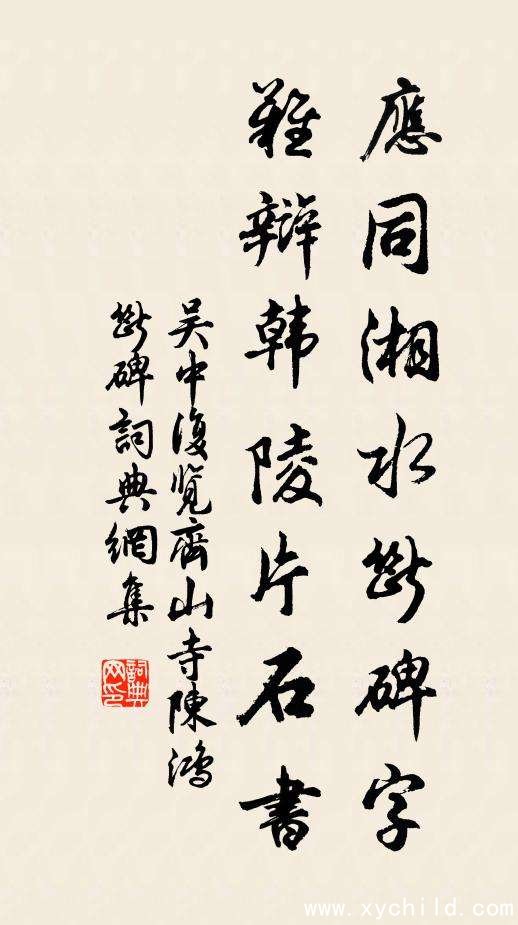 應同湘水斷碑字
難辯韩陵片石書
吴中復览齊山寺陳鴻
斷碑詞典網集
詞典网印
www.xychild.com